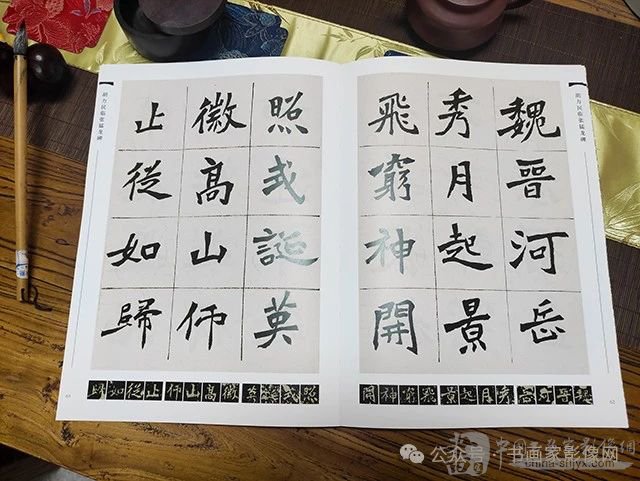 魏晉河岳
秀月起景
飛窮神開
照式誕英
徽高山仰
止從如歸
临张猛龙碑
临张猛龙碑
歸如從止仰山高徽英誕式照
開神窮飛景起月秀岳河晉魏
62
公众号 · 书画家影像网